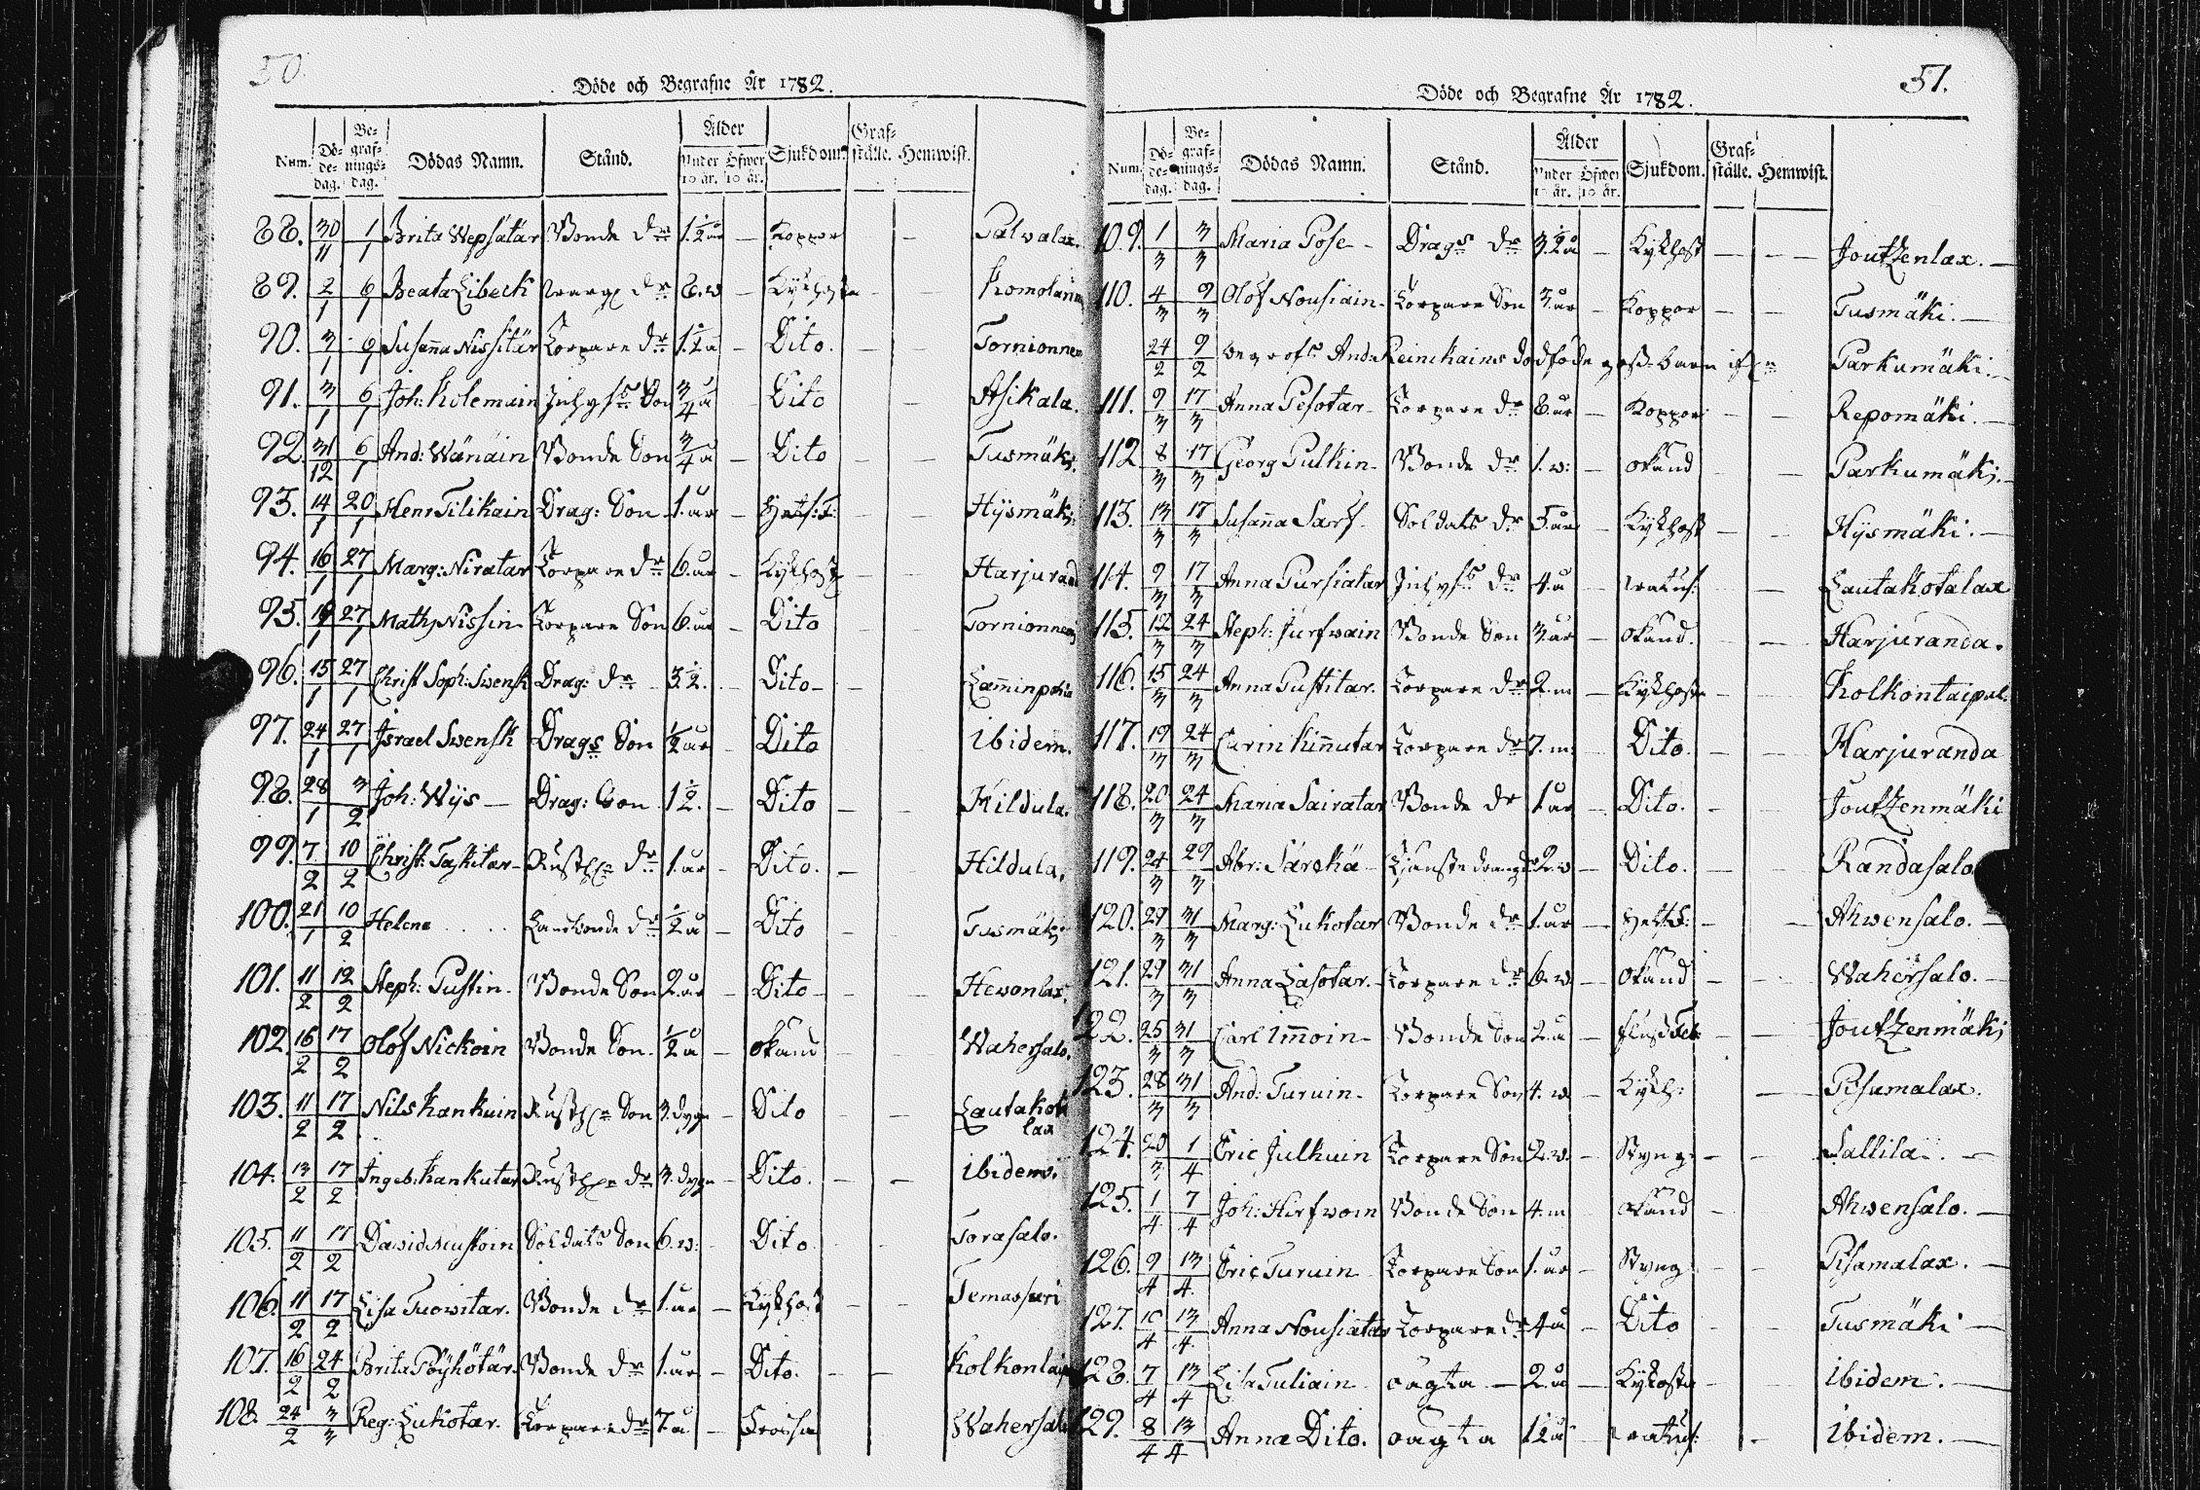 50.
Döde och Begrafne År 1782.
Num. Dö-de-dag. Be-graf-nings-dag. Dödas Namn. Stånd. Ålder Under 10 år. Öfwer 10 år. Sjukdom. Graf-ställe. Hemwist.
88. 30/11 1/1 Brita Wepsätär Bonde dr 1.1/2 år — Koppor — Palvalax.
89. 2/1 6/1 Beata Libeck dr 8.w — Kykhosta — —
90. 3/1 6/1 Susanna Nissitär Torpare dr 1.1/2 å — Dito. — Tornionnem
91. 3/1 6/1 Joh: Kolemain Inhyses Son 3/4 å Dito — Asikala.
92. 31/12 6/1 And: Wänäin Bonde Son 3/4 å — Dito — — Tusmäki.
93. 14/1 20/1 Henr Tilikain Drag: Son 1. år — — — Hysmäki:
94. 16/1 27/1 Marg: Niratar Torpare dr 6. år — Kykhost — — Harjurand
95. 19/1 27/1 Math: Nissin Torpare Son 6. år — Dito — — Tornionnem
96. 15/1 27/1 Christ Soph: Swensk Drag: dr 3.1/2. — Dito — — Lamminpohia
97. 24/1 27/1 Israel Swensk Drags Son 1/2 år — Dito ibidem.
98. 28/1 3/2 Joh: Wijs — Drag: Son 1 1/2. — Dito — — Hildula.
99. 7/2 10/2 Christ: Taskitar — Rusth. dr 1. år — Dito. — Hildula.
100. 21/1 10/2 Helena . . . . Landbonde dr 1/2 å — Dito — Tusmäki
101. 11/2 12/2 Steph: Pustin — Bonde Son 2. år — Dito — — — Hewonlax.
102. 16/2 17/2 Olof Nickoin Bonde Son. 1/2 å — okänd — — Wahersalo.
103. 11/2 17/2 Nils Kankuin Rusth. Son 3. dygn — Dito — — Lautakota
lax
104. 13/2 17/2 Ingeb: Kankutar Rusth. dr 3. dygn — Dito. — — ibidem.
105. 11/2 17/2 David Mustoin Soldats Son 6. w: Dito. Torasalo.
106. 11/2 17/2 Lisa Tuowitar. Bonde dr 1. år — Kykhost — — Temassuri
107. 16/2 24/2 Brita Pöyhötär. Bonde dr 1. år — Dito. — — Kolkontaip
108. 24/2 3/3 Reg: Lukotar. Torpare dr 7. å — Wahersalo
51.
Döde och Begrafne År 1782.
Num. Dö-de-dag. Be-graf-nings-dag. Dödas Namn. Stånd. Ålder Under 10 år. Öfwer 10 år. Sjukdom. Graf-ställe. Hemwist.
109. 1/3 3/3 Maria Pose — Drags dr 3.1/2 å — Kykhost — — — Joutzenlax. —
110. 4/3 9/3 Olof Nousiain — Torpare Son 3. år — Koppor — — Tusmäki. —
24/2 9/2 And: Reinikains dödföde goss-barn Parkumäki. —
111. 9/3 17/3 Anna Pesotar — Torpare dr 8. år — Koppor — — Repomäki. —
112 8/3 17/3 Georg Pulkin — Bonde dr 1. w: — okänd — — Parkumäki. —
113. 13/3 17/3 Susanna Sarf — Soldats dr 5. år — Kykhost — — Hysmäki. —
114. 9/3 17/3 Anna Pursiatar Inhyses dr 4. å — — — Lautakotalax
115. 12/3 24/3 Steph: Hurfwain Bonde Son 3. år — okänd. — Harjuranda.
116. 15/3 24/3 Anna Pustitar. Torpare dr 2. m — Kykhosta — Kolkontaipal.
117. 19/3 24/3 Carin Kinnutar Torpare dr 7. m: Dito. — — Harjuranda
118. 20/3 24/3 Maria Sairatar Bonde dr 1. år — Dito. — — Joutzenmäki
119. 24/3 29/3 Abr: Särekä — 2. w — Dito. — — Randasalo
120. 29/3 31/3 Marg: Lukotar Bonde dr 1. år — — — Ahwensalo. —
121. 29/3 31/3 Anna Lasotar. — Torpare dr 6. w — Okänd — — Wahersalo. —
122. 25/3 31/3 Carl Immoin — Bonde Son 2. å — — — Joutzenmäki
123. 28/3 31/3 And: Turuin — Torpare Son 4. w — Kykh: — Pisamalax.
124. 20/3 1/4 Eric Julkuin Torpare Son 2. w. — Styng — — Sallila. —
125. 1/4 7/4 Joh: Hirfwoin Bonde Son 4. m okänd — Ahwensalo. —
126. 9/4 13/4 Eric Turuin Torpare Son 1. år — Styng — — Pisamalax. —
127. 10/4 13/4 Anna Nousiatar Torpare dr 4 å — Dito — — Tusmäki —
128. 7/4 13/4 Lisa Tuliain oägta — 2. å — Kykhosta — — ibidem. —
129. 8/4 13/4 Anna Dito. oägta 1 1/2 å — — ibidem. —